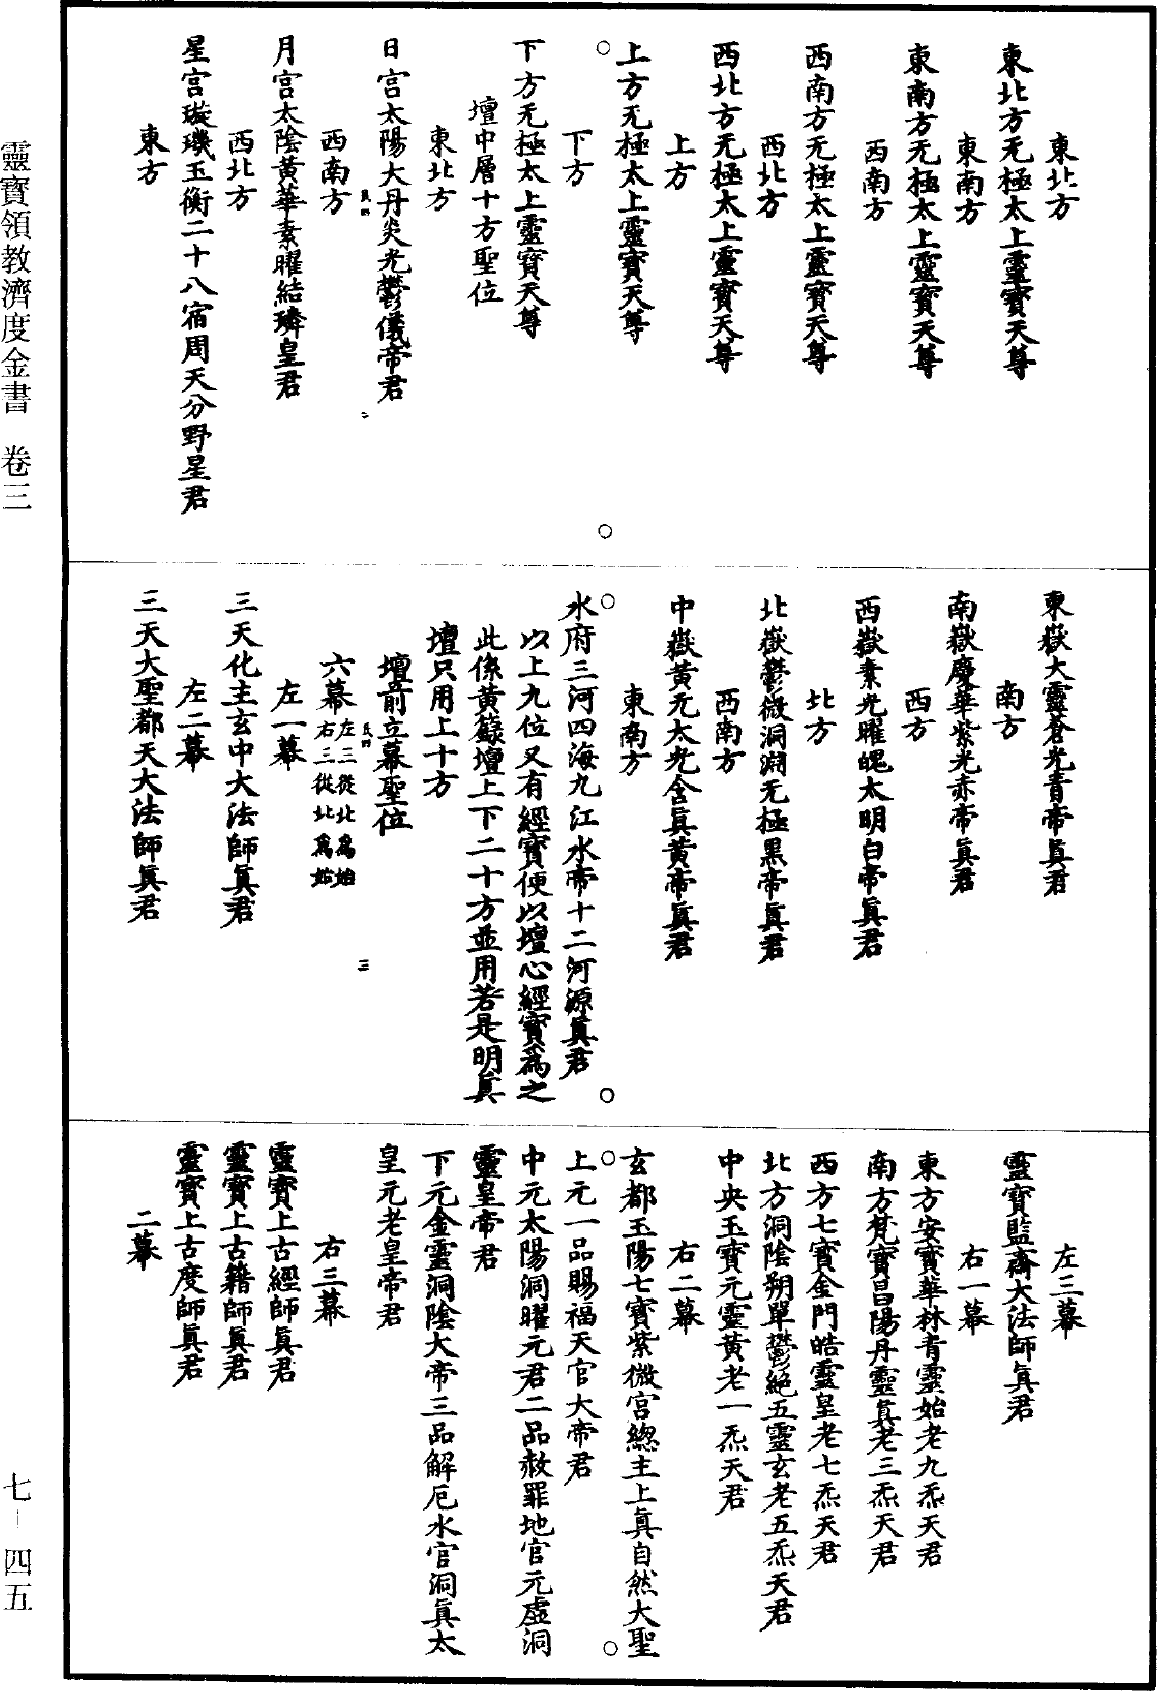 東北方
東北方无極太上靈寶天尊
東南方
東南方无極太上靈寶天尊
西南方
西南方无極太上靈寶天尊
西北方
西北方无極太上靈寶天尊
上方
上方无極太上靈寶天尊
下方
下方无極太上靈寶天尊
壇中層十方聖位
東北方
日宮太陽大丹炎光鬱儀帝君
西南方
月宮太陰黃華素曜結璘皇君
西北方
星宮璇璣玉衡二十八宿周天分野星君
東方
二
東嶽大靈蒼光青帝眞君
南方
南嶽慶華紫光赤帝眞君
西方
西嶽素光曜魄太明白帝眞君
北方
北嶽鬱微洞淵无極黑帝眞君
西南方
中嶽黃元太光含眞黃帝眞君
東南方
水府三河四海九江水帝十二河源眞君
以上九位又有經寶便以壇心經寶爲之
此係黃籙壇上下二十方並用若是明眞
壇只用上十方
壇前立幕聖位
六幕左三從北爲始右三從北爲始
左一幕
三天化主玄中大法師眞君
左二幕
三天大聖都天大法師眞君
三
左三幕
靈寶監齋大法師眞君
右一幕
東方安寶華林青靈始老九炁天君
南方梵寶昌陽丹靈眞老三炁天君
西方七寶金門皓靈皇老七炁天君
北方洞陰朔單鬱絕五靈玄老五炁天君
中央玉寶元靈黃老一炁天君
右二幕
玄都玉陽七寶紫微宮總主上眞自然大聖
上元一品賜福天官大帝君
中元太陽洞曜元君二品赦罪地官元虛洞
靈皇帝君
下元金靈洞陰大帝三品解厄水官洞眞太
皇元老皇帝君
右三幕
靈寶上古經師眞君
靈寶上古籍師眞君
靈寶上古度師眞君
二幕
靈寶領教濟度金書 卷三
七－四五